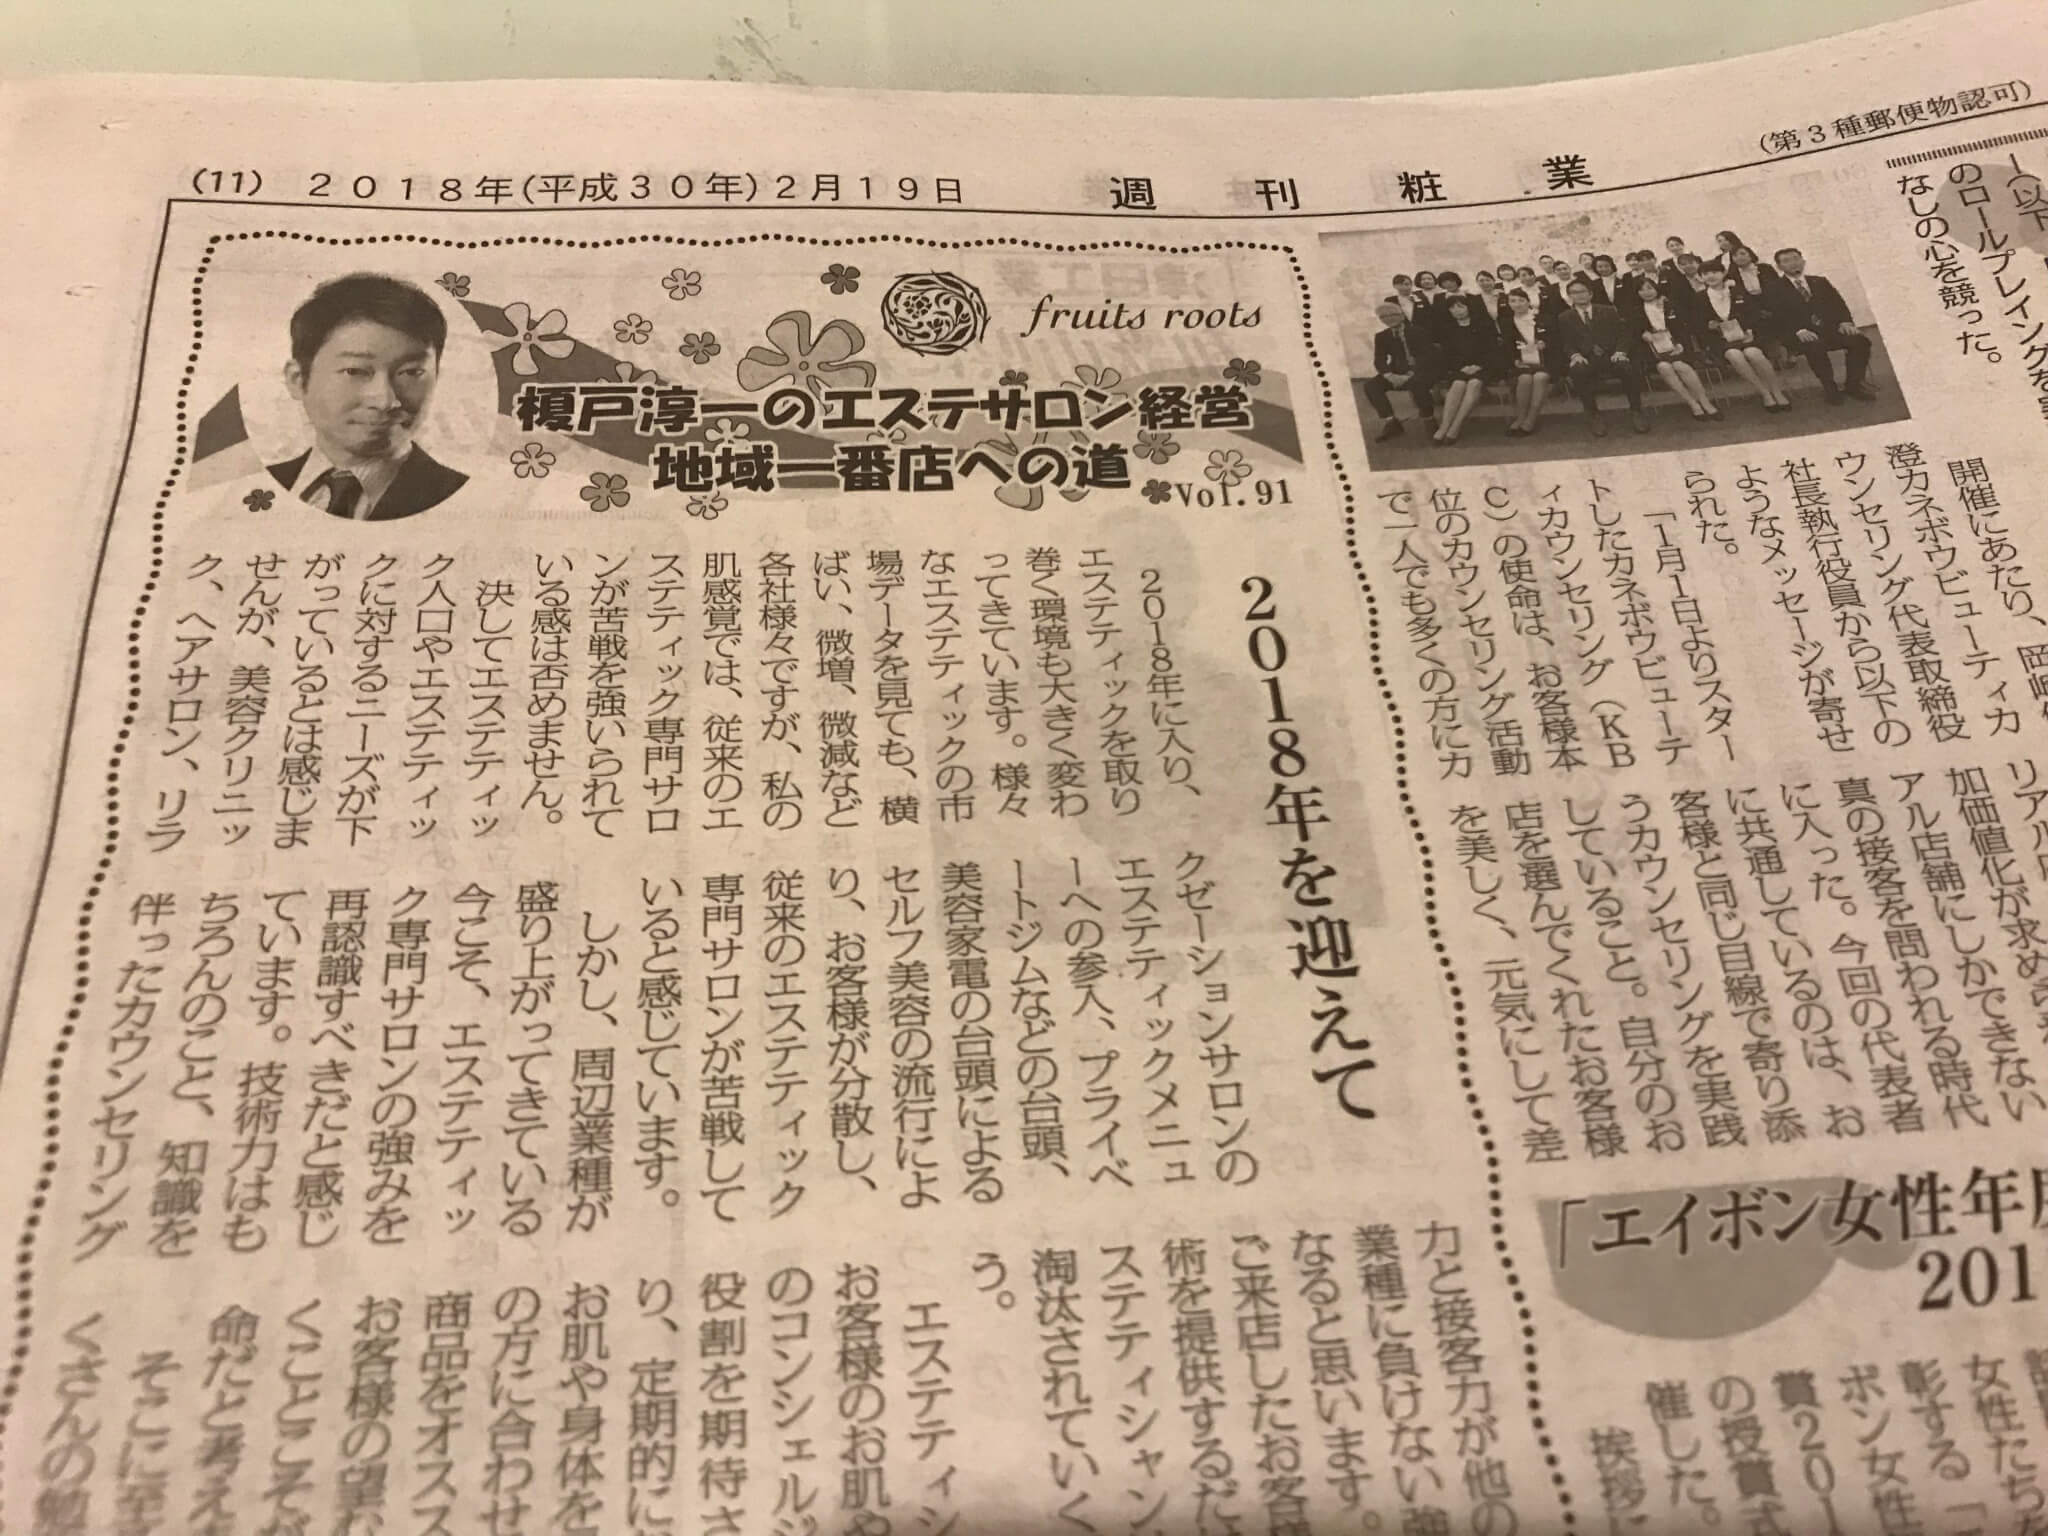 (11) 2018年(平成30年)2月19日
週刊粧業
(第3種郵便物認可)
fruits roots
榎戸淳一のエステサロン経営
地域一番店への道
Vol.91
2018年を迎えて
2018年に入り、
エステティックを取り
巻く環境も大きく変わ
ってきています。様々
なエステティックの市
場データを見ても、横
ばい、微増、微減など
各社様々ですが、私の
肌感覚では、従来のエ
ステティック専門サロ
ンが苦戦を強いられて
いる感は否めません。
決してエステティッ
ク人口やエステティッ
クに対するニーズが下
がっているとは感じま
せんが、美容クリニッ
ク、ヘアサロン、リラ
クゼーションサロンの
エステティックメニュ
ーへの参入、プライベ
ートジムなどの台頭、
美容家電の台頭による
セルフ美容の流行によ
り、お客様が分散し、
従来のエステティック
専門サロンが苦戦して
いると感じています。
しかし、周辺業種が
盛り上がってきている
今こそ、エステティッ
ク専門サロンの強みを
再認識すべきだと感じ
ています。技術力はも
ちろんのこと、知識を
伴ったカウンセリング
力と接客力が他の
業種に負けない強
なると思います。
ご来店したお客様
術を提供するだけ
ステティシャン
淘汰されていく
う。
エステティシ
お客様のお肌や
のコンシェルジ
役割を期待さ
り、定期的に
お肌や身体を
の方に合わせ
商品をオスス
お客様の望む
くことこそが
命だと考え
そこに至
くさんの勉
ー(以下
のロールプレイングを
なしの心を競った。
開催にあたり、岡崎
澄カネボウビューティカ
ウンセリング代表取締役
社長執行役員から以下の
ようなメッセージが寄せ
られた。
「1月1日よりスター
トしたカネボウビューテ
ィカウンセリング(KB
C)の使命は、お客様本
位のカウンセリング活動
で一人でも多くの方にカ
リアル店
加価値化が求めら
アル店舗にしかできない
真の接客を問われる時代
に入った。今回の代表者
に共通しているのは、お
客様と同じ目線で寄り添
うカウンセリングを実践
していること。自分のお
店を選んでくれたお客様
を美しく、元気にして差
「エイボン女性年度
201
女性たち
彰する「
ボン女性
賞201
の授賞式
催した。
挨拶に